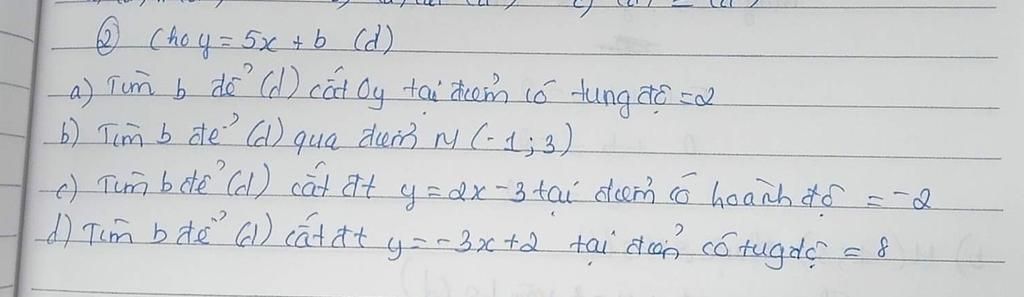 ② Cho y = 5x + b (d)
a) Tìm b để (d) cắt Oy tại điểm có tung độ = 2
b) Tìm b để (d) qua điểm N (-1; 3)
c) Tìm b để (d) cắt đt y = 2x - 3 tại điểm có hoành độ = -2
d) Tìm b để (d) cắt đt y = -3x + 2 tại điểm có tug độ = 8